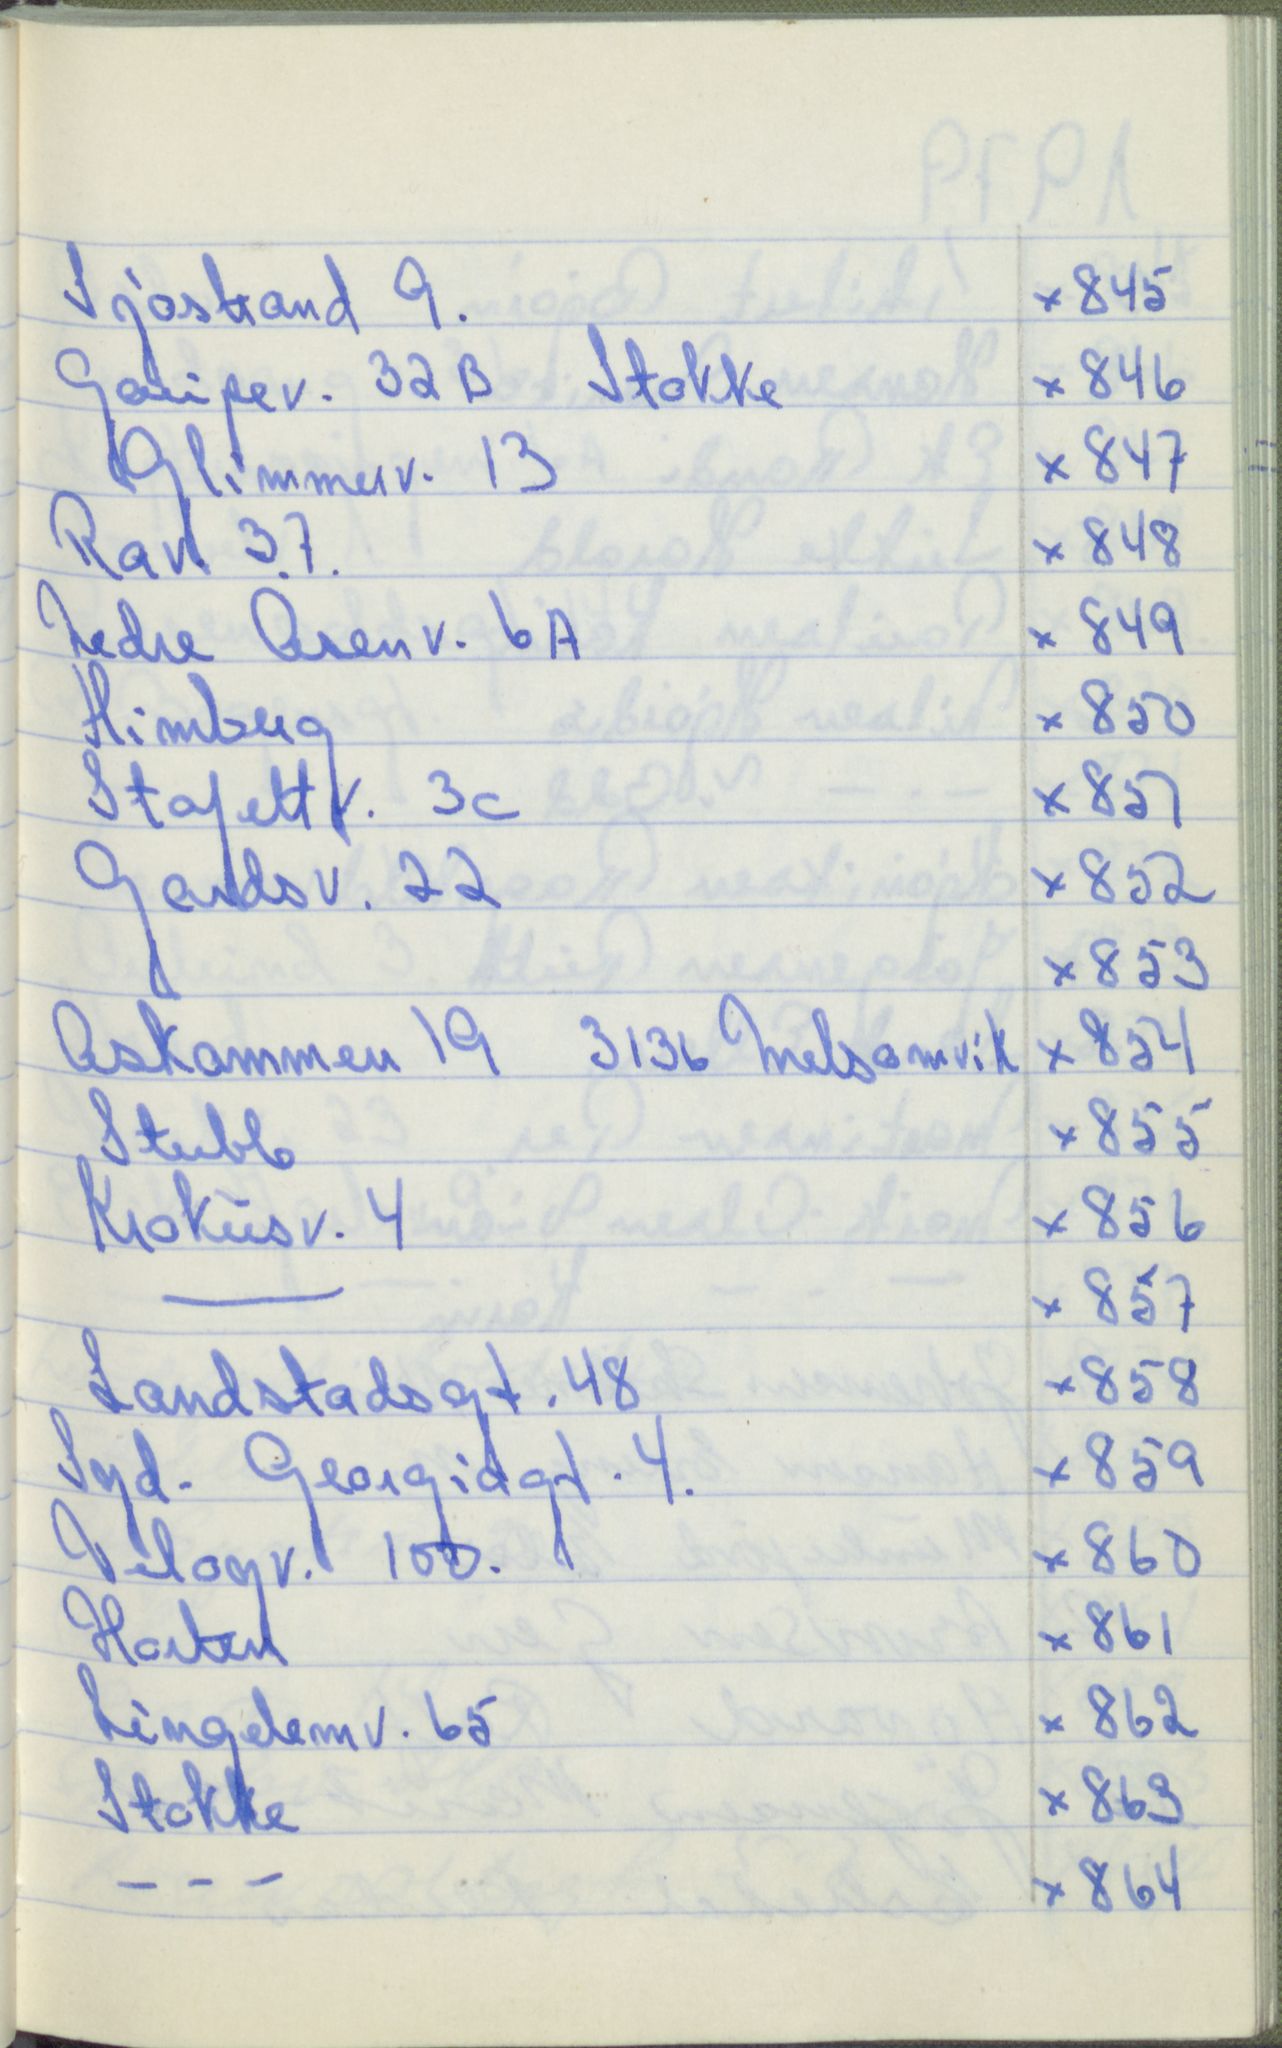 Sjøstrand 9. x 845
Gaupev. 32 B Stokke x 846
Glimmerv. 13 x 847
Ravl 37. x 848
Nedre Åsenv. 6 A x 849
Himberg x 850
Stafettv. 3c x 851
Gardsv. 22 x 852
x 853
Askammen 19 3136 Melsomvik x 854
Stubb x 855
Krokusv. 4 x 856
— x 857
Landstadsgt. 48 x 858
Syd. Georgiagt. 4. x 859
Veloyv. 100. x 860
Horten x 861
Lingelemv. 65 x 862
Stokke x 863
- - - x 864